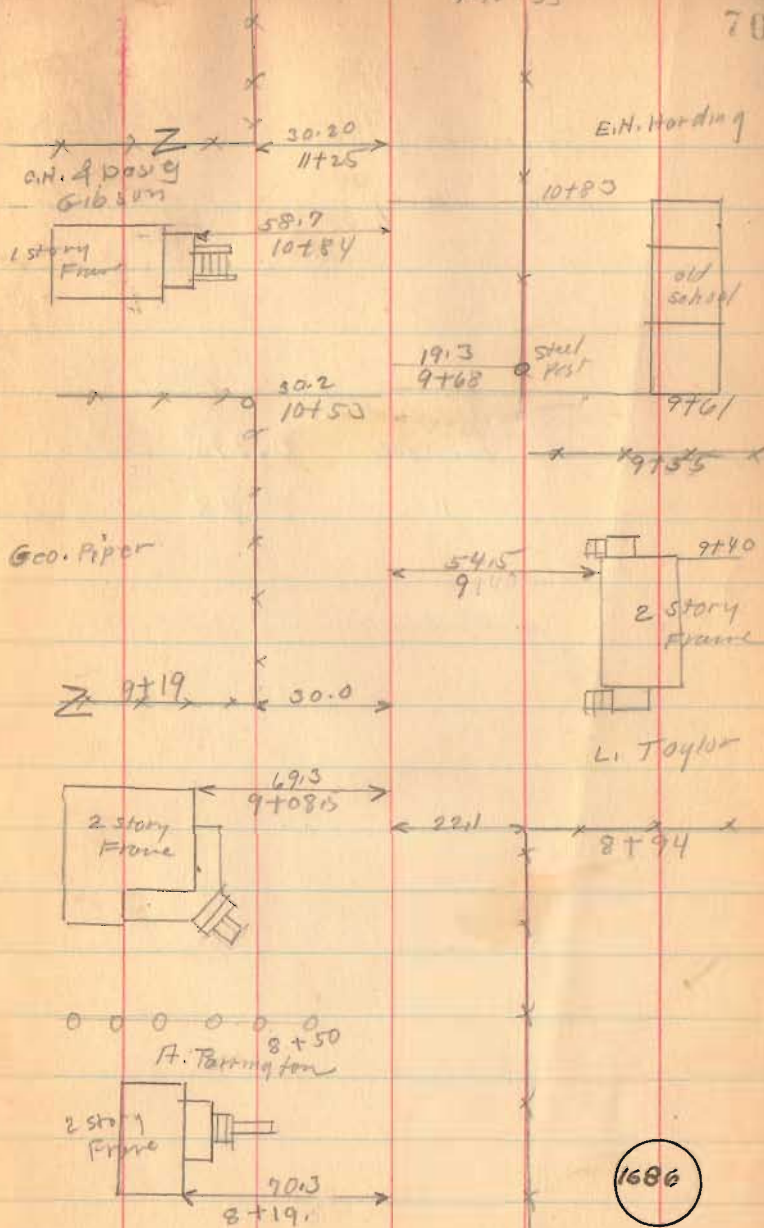 70
30.20
11+25
E.H. Harding
Gibson
58.7
10+84
10+83
1 story
Frame
old
school
19.3
9+68
Steel
Post
30.2
10+50
9+61
9+35
Geo. Piper
54.5
9+40
2 Story
Frame
9+19
30.0
L. Taylor
69.3
9+08.5
2 story
Frame
22.1
8+94
8+50
A. Parrington
2 story
Frame
70.3
8+19.
1686